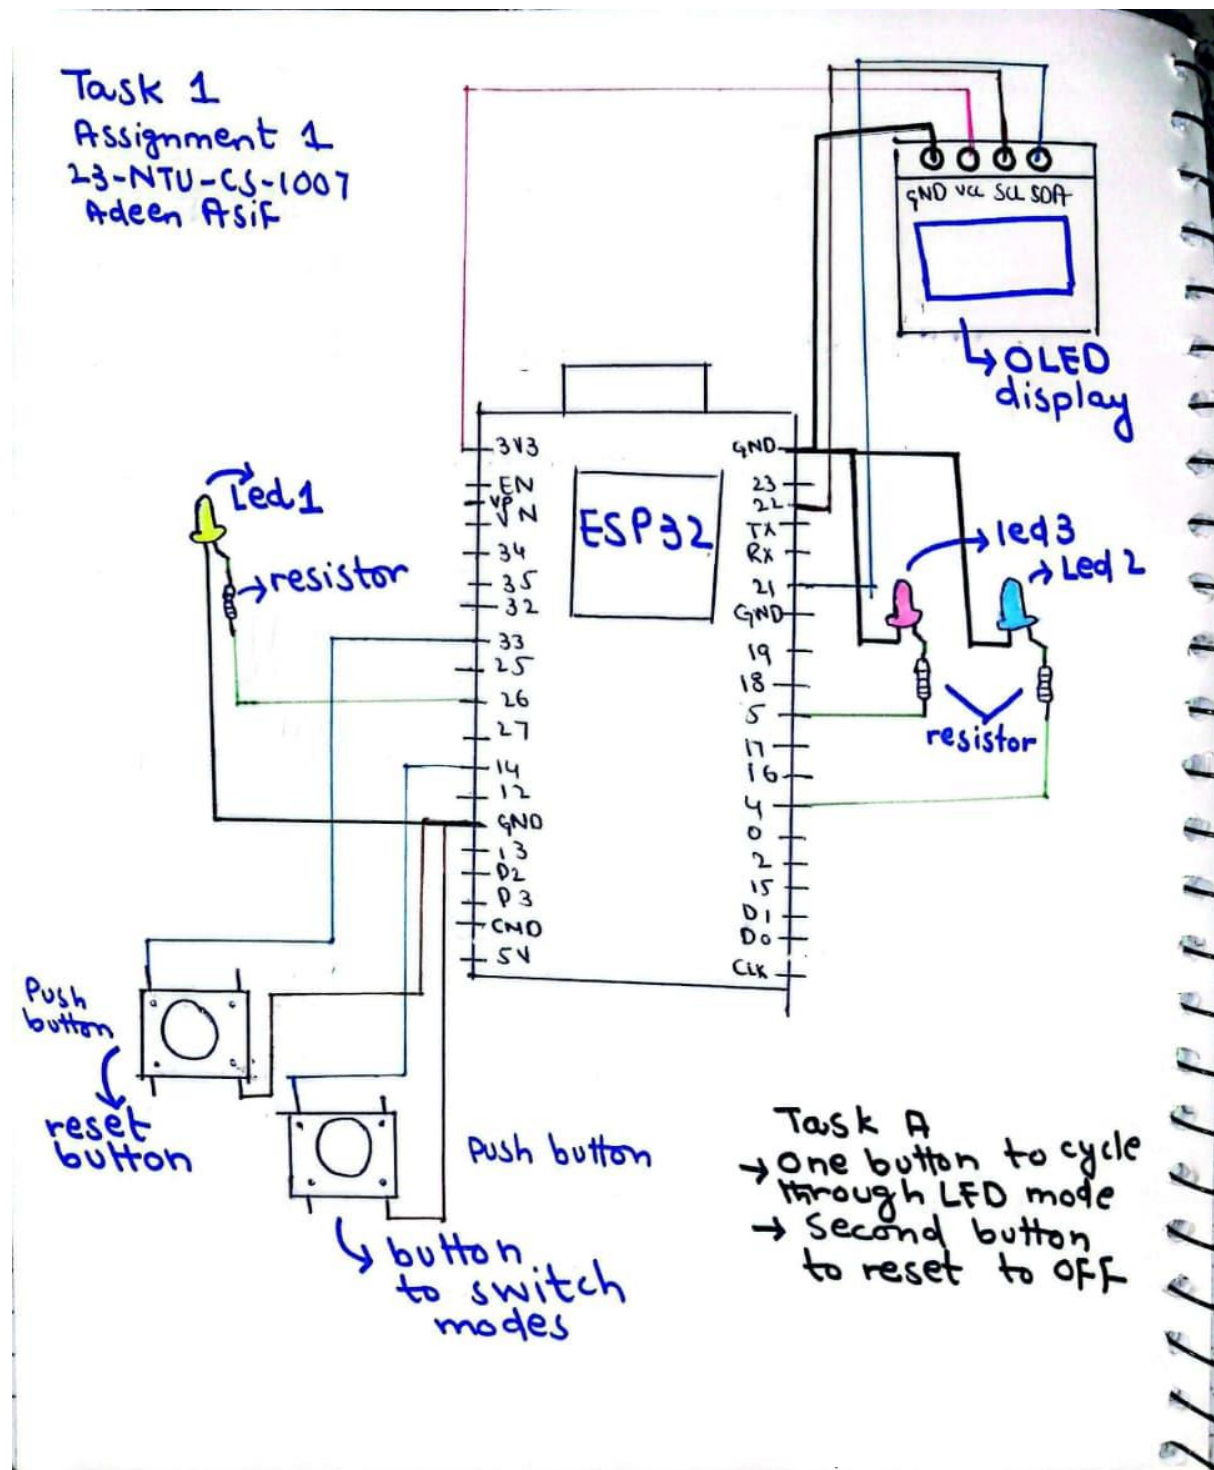 Task 1
Assignment 1
23-NTU-CS-1007
Adeen Asif
GND VCC SCL SDA
OLED
display
ESP32
3V3
EN
VP
VN
34
35
32
33
25
26
27
14
12
GND
13
D2
D3
CMD
5V
GND
23
22
TX
RX
21
GND
19
18
5
17
16
4
0
2
15
D1
D0
CLK
Led1
resistor
led3
Led2
resistor
Push
button
reset
button
Push button
button
to switch
modes
Task A
→ One button to cycle
through LED mode
→ Second button
to reset to OFF